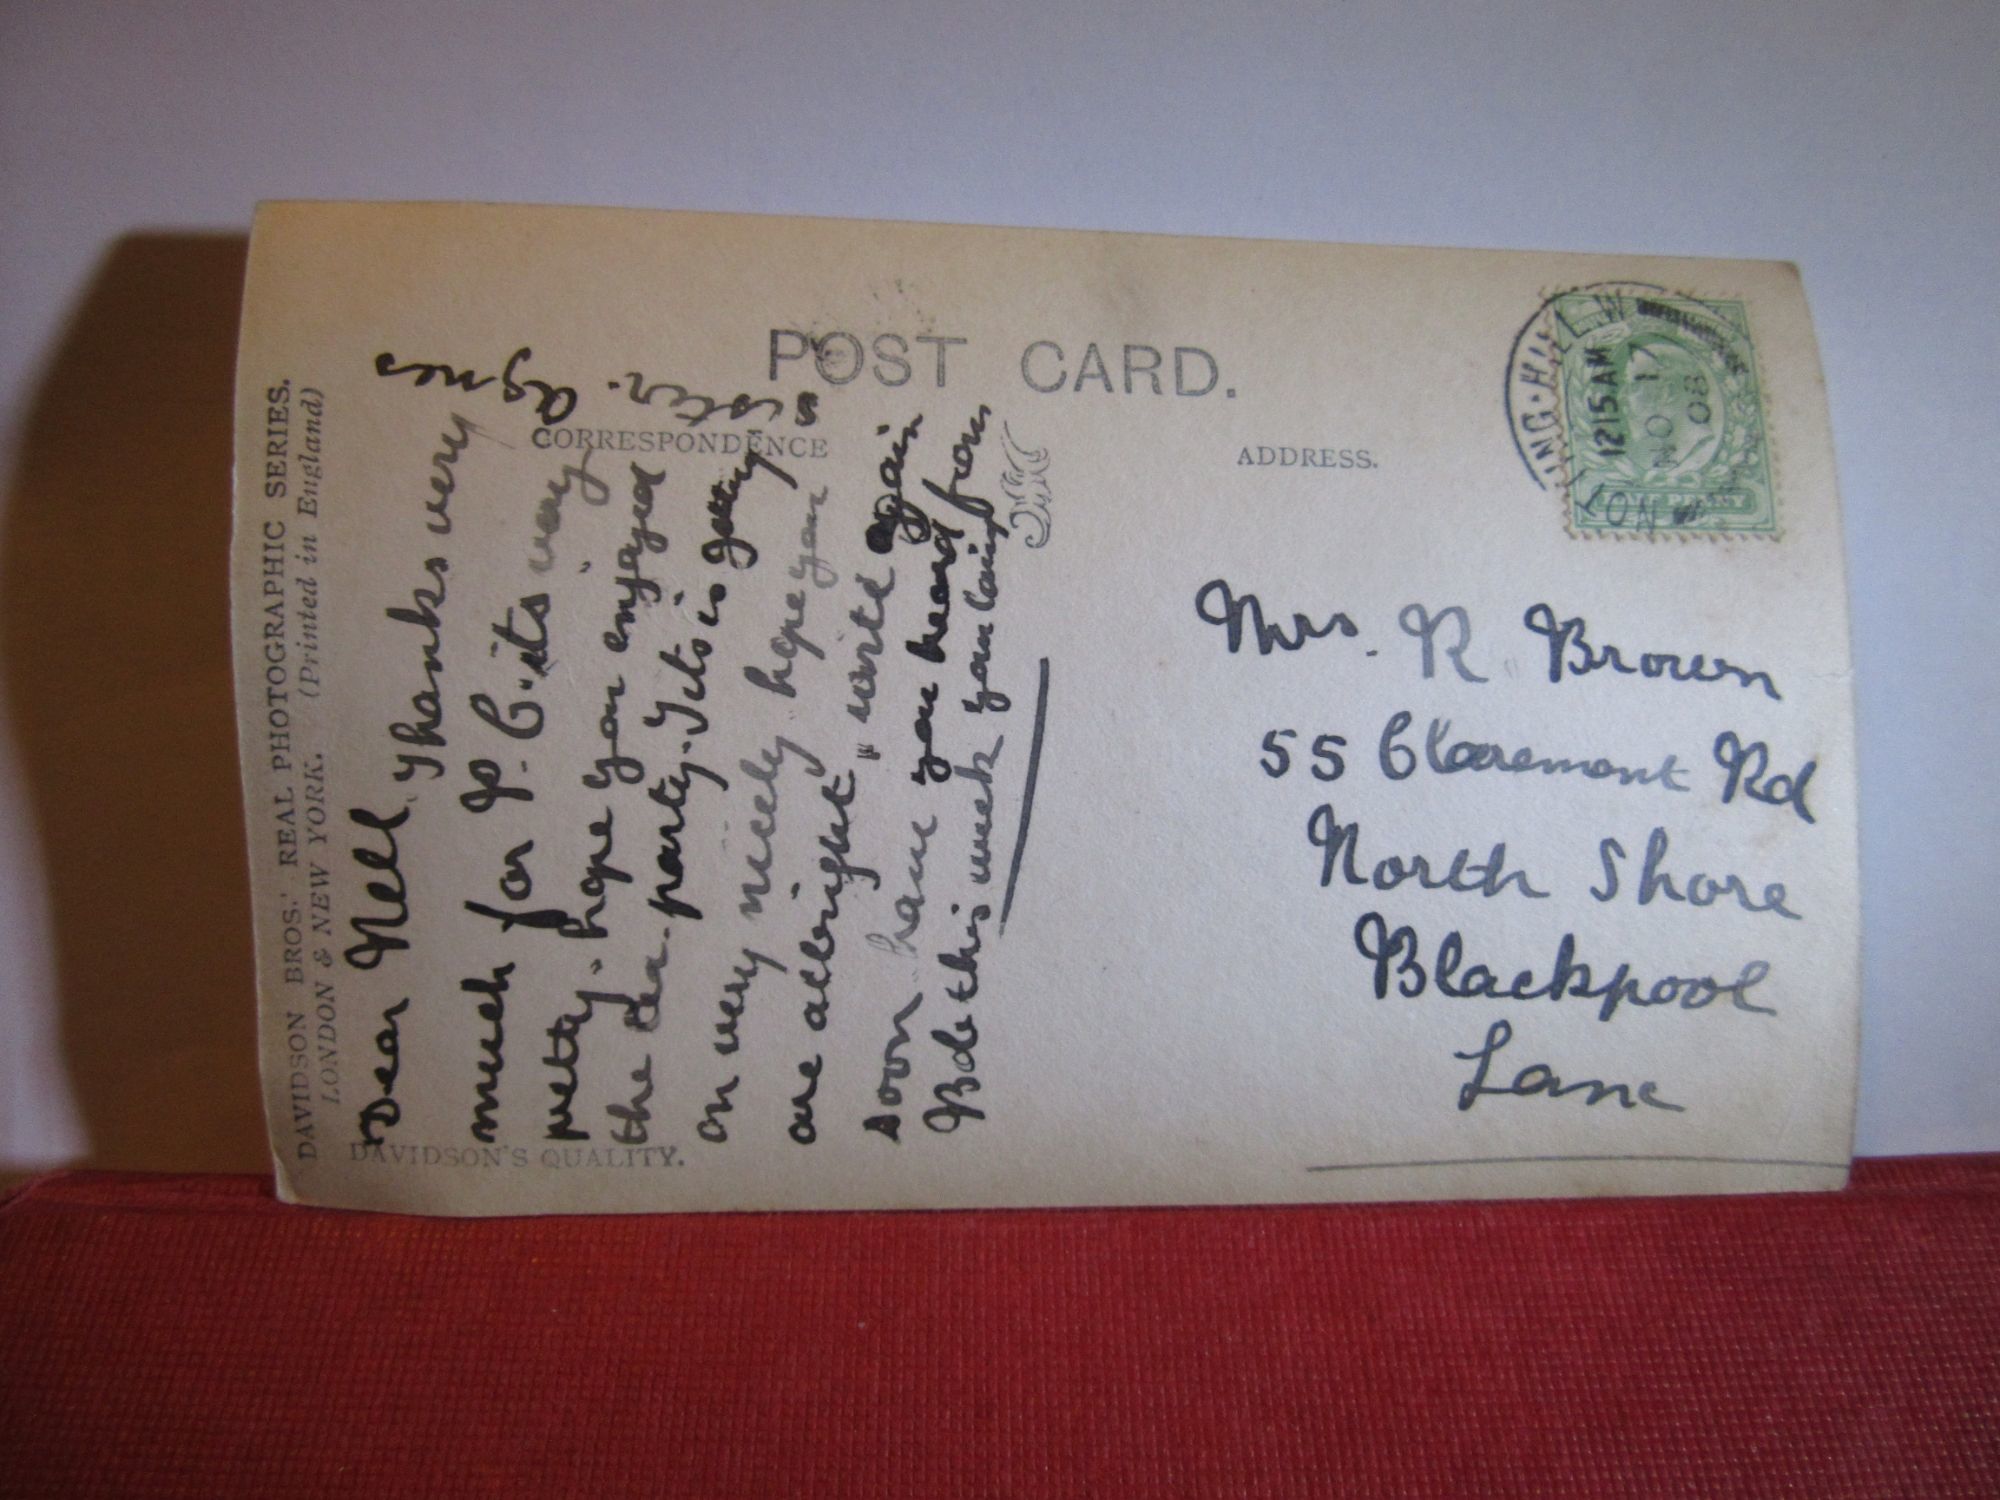 DAVIDSON BROS.' REAL PHOTOGRAPHIC SERIES.
LONDON & NEW YORK. (Printed in England)
DAVIDSON'S QUALITY.
POST CARD.
CORRESPONDENCE
ADDRESS.
Dear Nell Thanks very
much for P.C. its very
pretty. hope you enjoyed
the tea-party. Ted is going
on very nicely hope you
are allright write again
soon have you heard from
this week your loving
sister.
Agnes
Mrs. R Brown
55 Claremont Rd
North Shore
Blackpool
Lanc
HALF PENNY
12 15 AM
NO 17
08